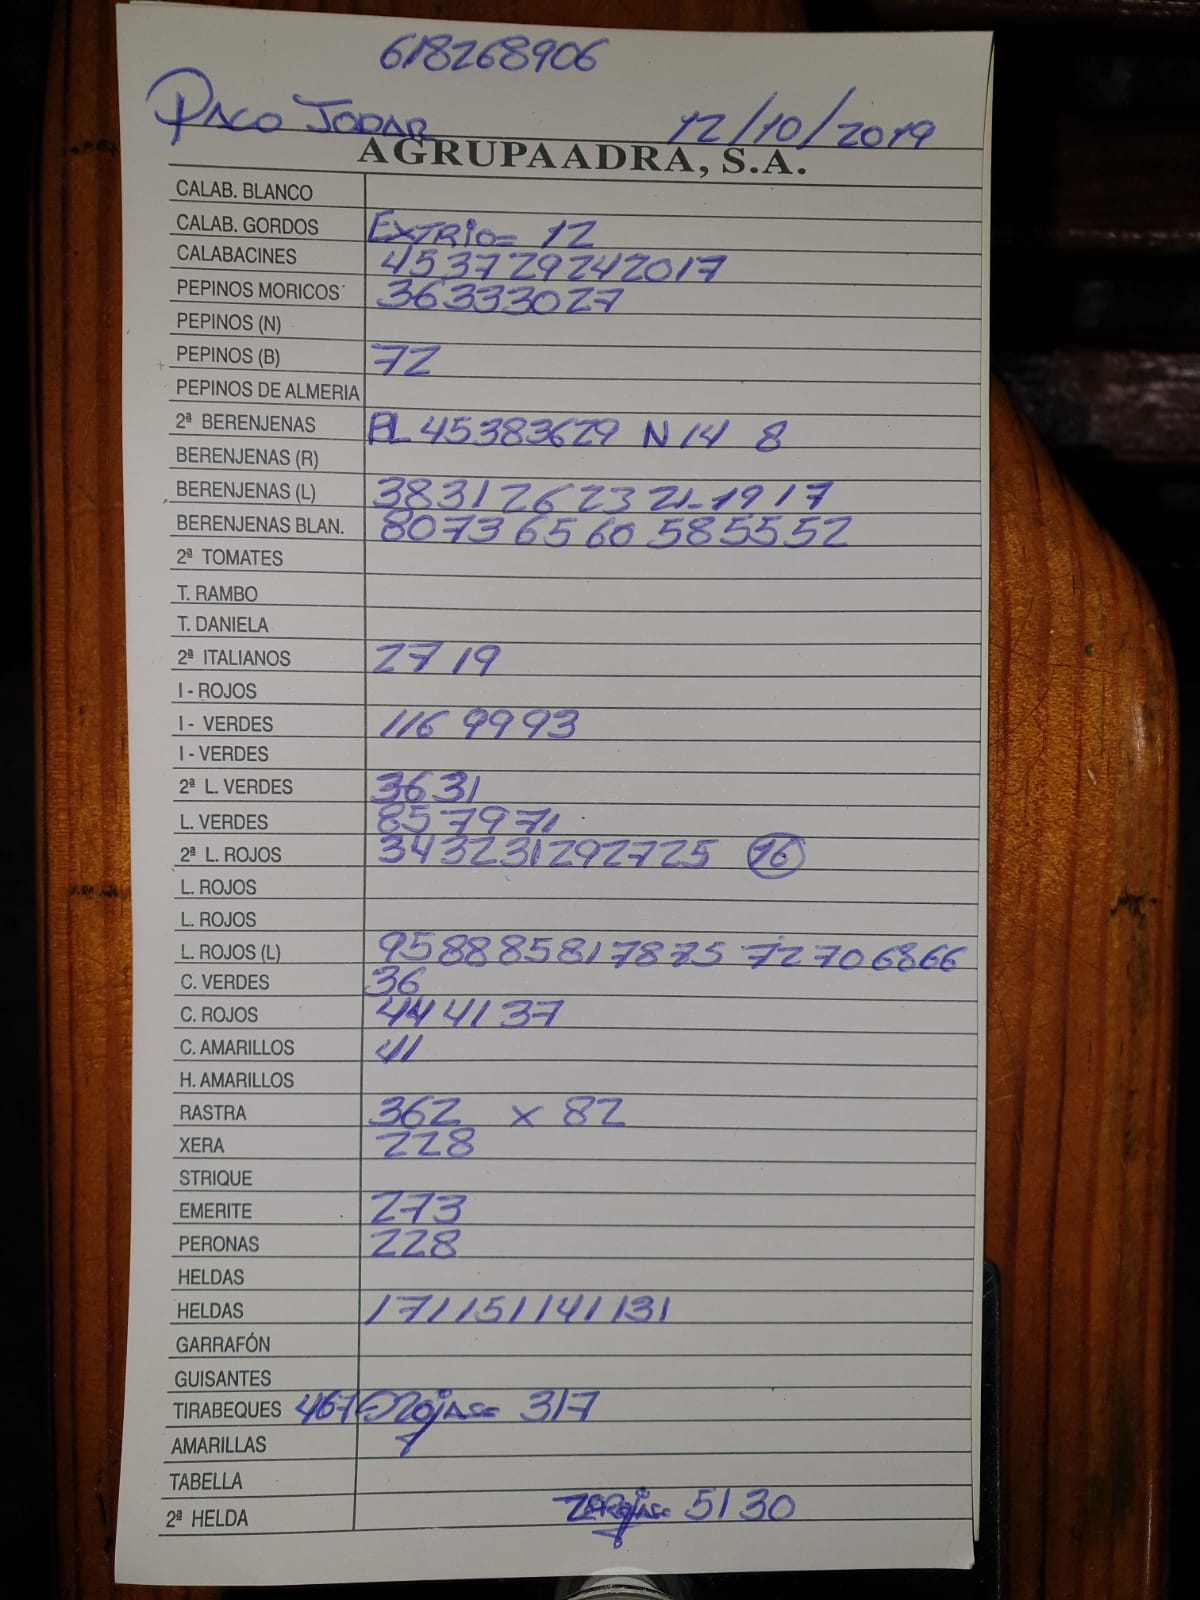 618268906
PACO JODAR 12/10/2019
AGRUPAADRA, S.A.
CALAB. BLANCO
CALAB. GORDOS EXTRIO= 12
CALABACINES 453729242017
PEPINOS MORICOS 36333027
PEPINOS (N)
PEPINOS (B) 72
PEPINOS DE ALMERIA
2ª BERENJENAS 45383629 N 14 8
BERENJENAS (R)
BERENJENAS (L) 3831262321-1917
BERENJENAS BLAN. 8073656058555 2
2ª TOMATES
T. RAMBO
T. DANIELA
2ª ITALIANOS 27 19
I - ROJOS
I - VERDES 116 9993
I - VERDES
2ª L. VERDES 3631
L. VERDES 857971
2ª L. ROJOS 343231292725 16
L. ROJOS
L. ROJOS
L. ROJOS (L) 958885817875 72706866
C. VERDES 36
C. ROJOS 444137
C. AMARILLOS 41
H. AMARILLOS
RASTRA 362 x 82
XERA 228
STRIQUE
EMERITE 273
PERONAS 228
HELDAS
HELDAS 171151141131
GARRAFÓN
GUISANTES
TIRABEQUES 467 317
AMARILLAS
TABELLA
2ª HELDA 5130